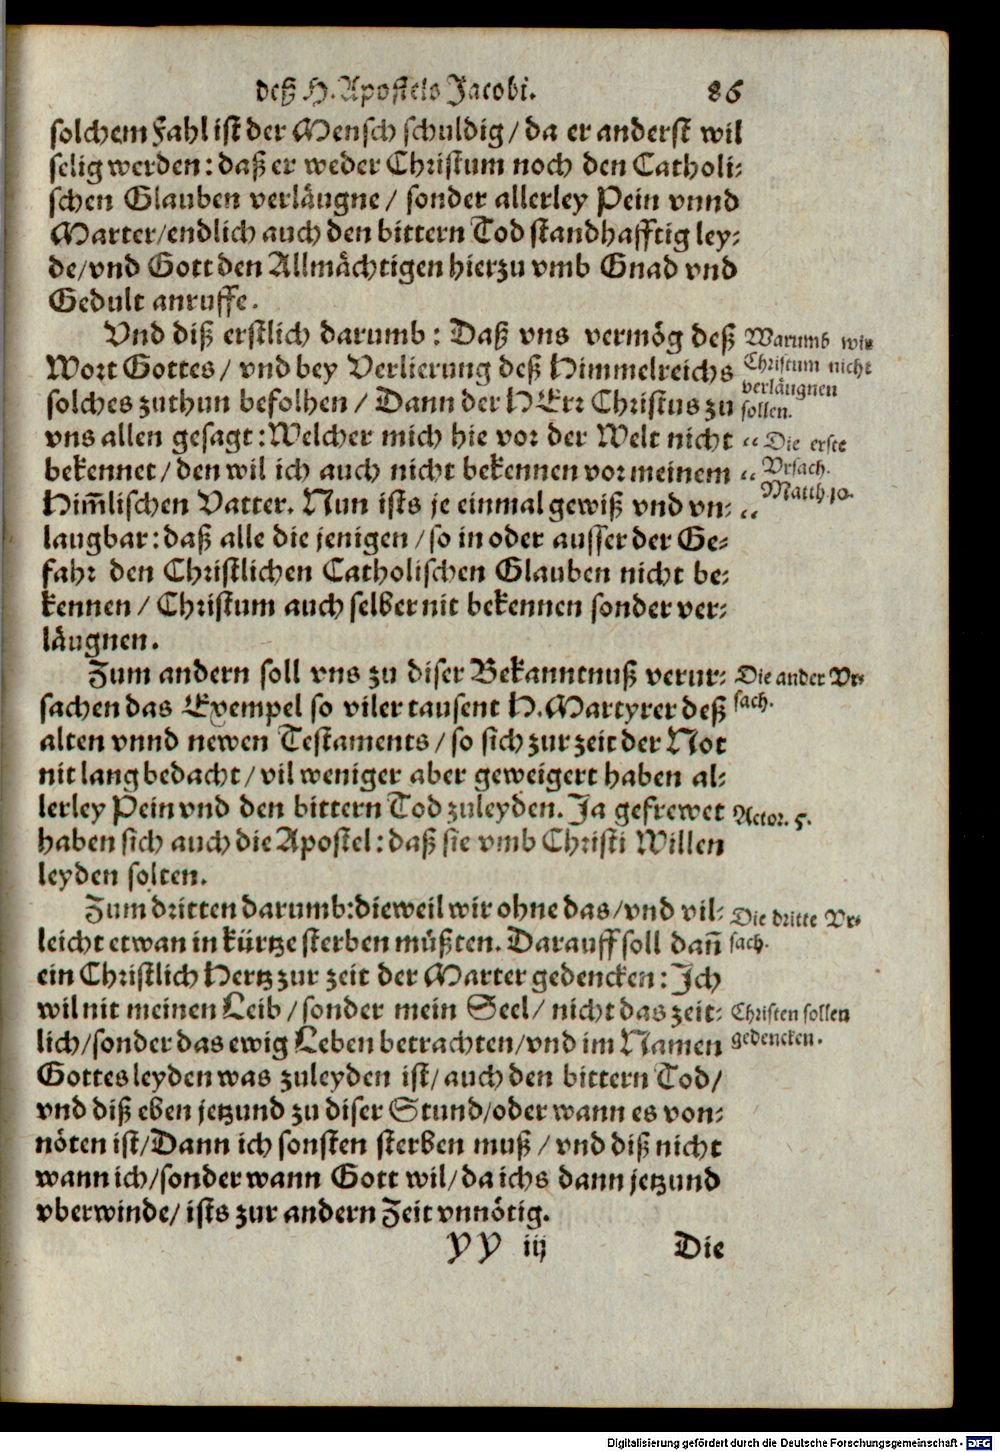 deß H. Apostels Jacobi. 86
solchem Fahl ist der Mensch schuldig / da er anderst wil
selig werden: daß er weder Christum noch den Catholi-
schen Glauben verläugne / sonder allerley Pein vnnd
Marter/endlich auch den bittern Tod standhafftig ley-
de/vnd Gott den Allmächtigen hierzu vmb Gnad vnd
Gedult anruffe.
Vnd diß erstlich darumb: Daß vns vermög deß
Wort Gottes / vnd bey Verlierung deß Himmelreichs
solches zuthun befolhen / Dann der HErr Christus zu
vns allen gesagt: Welcher mich hie vor der Welt nicht
bekennet / den wil ich auch nicht bekennen vor meinem
Him̃lischen Vatter. Nun ists je einmal gewiß vnd vn-
laugbar: daß alle die jenigen / so in oder ausser der Ge-
fahr den Christlichen Catholischen Glauben nicht be-
kennen / Christum auch selber nit bekennen sonder ver-
läugnen.
Warumb wir
Christum nicht
verläugnen
sollen.
“ Die erste
“ Vrsach.
Matth 10.
“
Zum andern soll vns zu diser Bekanntnuß verur-
sachen das Exempel so viler tausent H. Martyrer deß
alten vnnd newen Testaments / so sich zur zeit der Not
nit lang bedacht / vil weniger aber geweigert haben al-
lerley Pein vnd den bittern Tod zuleyden. Ja gefrewet
haben sich auch die Apostel: daß sie vmb Christi Willen
leyden solten.
Die ander Vr-
sach.
Actor. 5.
Zum dritten darumb: dieweil wir ohne das/vnd vil-
leicht etwan in kürtze sterben müßten. Darauff soll dañ
ein Christlich Hertz zur zeit der Marter gedencken: Ich
wil nit meinen Leib / sonder mein Seel / nicht das zeit-
lich/sonder das ewig Leben betrachten/vnd im Namen
Gottes leyden was zuleyden ist/ auch den bittern Tod/
vnd diß eben jetzund zu diser Stund/oder wann es von-
nöten ist/Dann ich sonsten sterben muß / vnd diß nicht
wann ich/sonder wann Gott wil/ da ichs dann jetzund
vberwinde/ ists zur andern Zeit vnnötig.
Die dritte Vr-
sach.
Christen sollen
gedencken.
YY iij Die
Digitalisierung gefördert durch die Deutsche Forschungsgemeinschaft - DFG